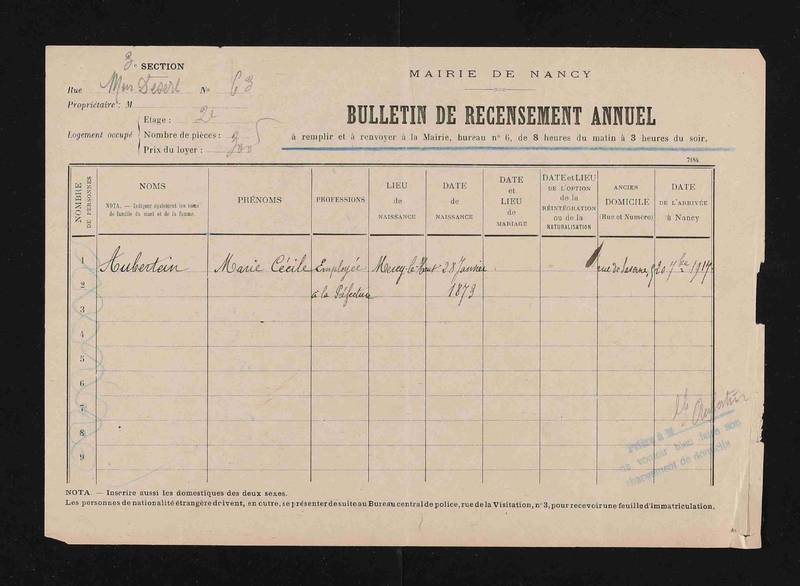 3e SECTION
Rue Mon Désert No 63
Propriétaire : M
Etage : 2e
Logement occupé
Nombre de pièces : 2
Prix du loyer :
MAIRIE DE NANCY
BULLETIN DE RECENSEMENT ANNUEL
à remplir et à renvoyer à la Mairie, bureau n° 6, de 8 heures du matin à 3 heures du soir.
NOMBRE DE PERSONNES
NOMS
NOTA. — Indiquer également les noms de famille du mari et de la femme.
PRÉNOMS
PROFESSIONS
LIEU de NAISSANCE
DATE de NAISSANCE
DATE et LIEU de MARIAGE
DATE et LIEU DE L'OPTION de la RÉINTÉGRATION ou de la NATURALISATION
ANCIEN DOMICILE (Rue et Numéro)
DATE DE L'ARRIVÉE à Nancy
1 Aubertein Marie Cécile Employée 28 Janvier 20 7bre 1917
2 à la Préfecture 1873
3
4
5
6
7
8
9
Prière à M
de vouloir bien faire son
changement de domicile
NOTA. — Inscrire aussi les domestiques des deux sexes.
Les personnes de nationalité étrangère doivent, en outre, se présenter de suite au Bureau central de police, rue de la Visitation, n° 3, pour recevoir une feuille d'immatriculation.